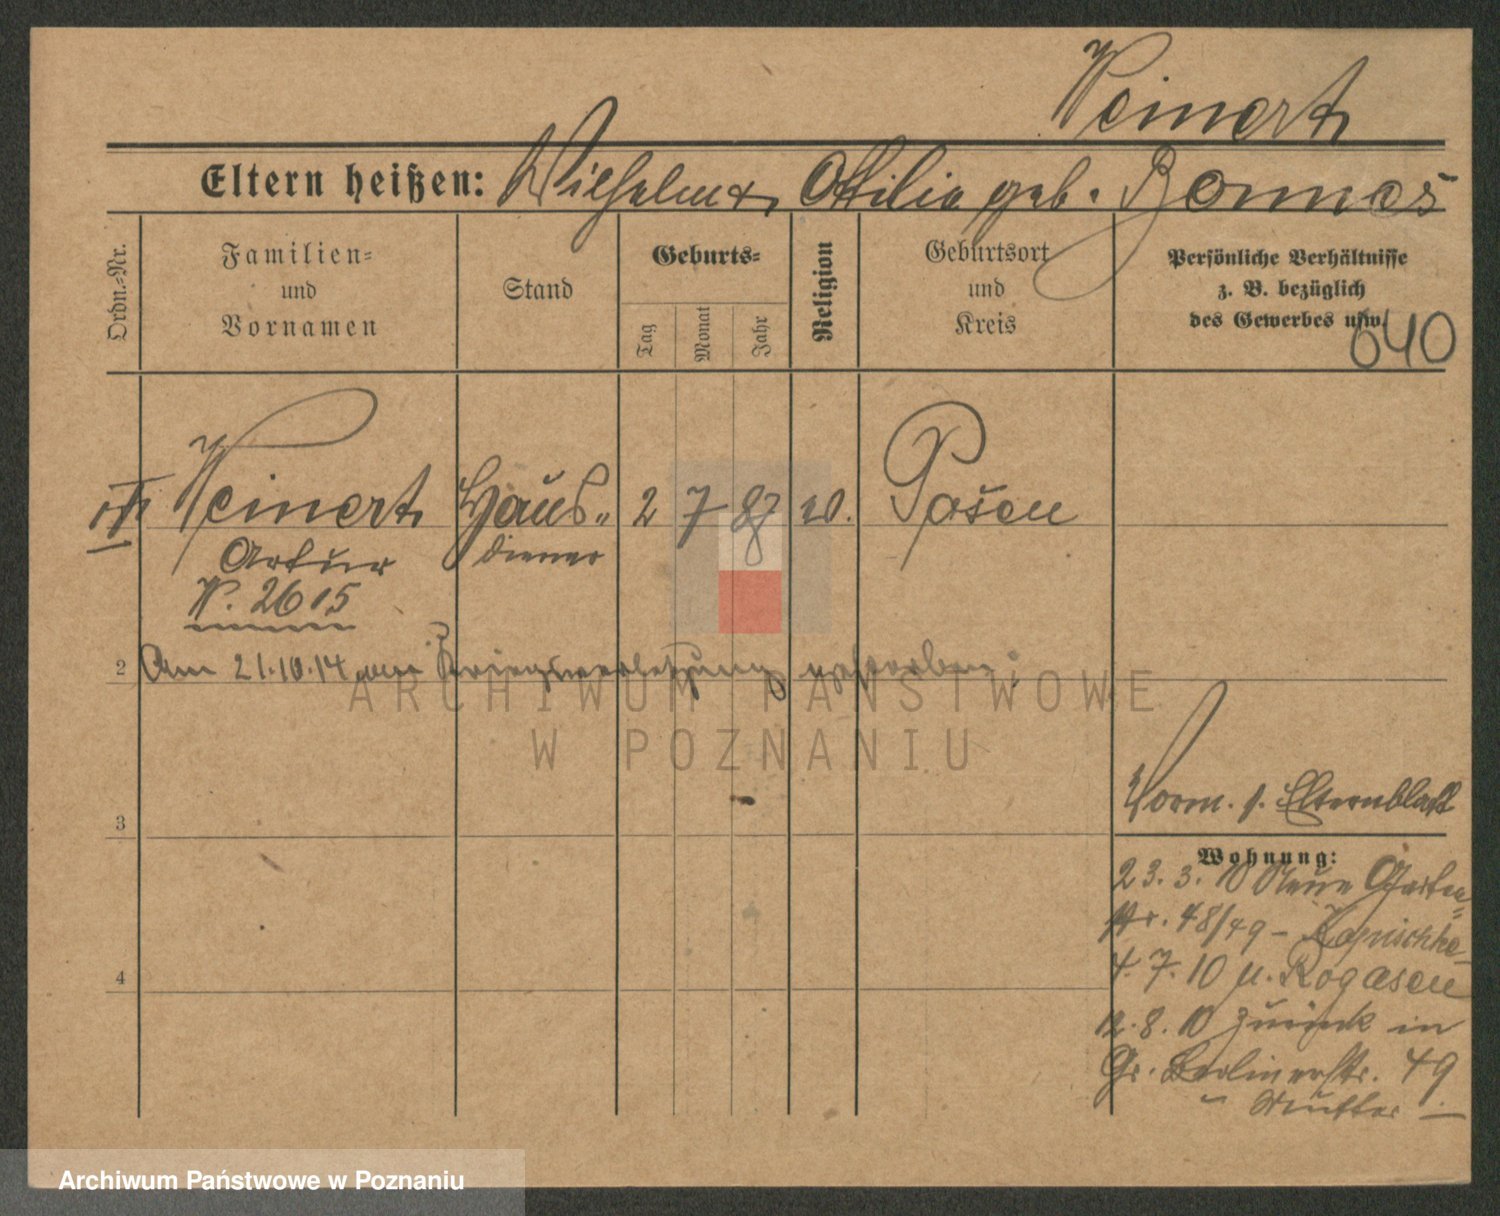 Weinert
Eltern heißen: Wilhelm u. Ottilie geb. Bonnes
Ordn.=Nr.
Familien=
und
Vornamen
Stand
Geburts=
Tag
Monat
Jahr
Religion
Geburtsort
und
Kreis
Persönliche Verhältnisse
z. B. bezüglich
des Gewerbes usw.
640
Weinert Haus- 2 7 87 Posen
Artur diener
W. 2615
2 Am 21.10.14 an Kriegsverletzung gestorben.
ARCHIWUM PAŃSTWOWE
W POZNANIU
Vorm. s. Elternblatt
3
Wohnung:
23. 3. 10 Neue Garten=
str. 48/49 -
4
4. 7. 10 n. Rogasen
12. 8. 10 zurück in
Gr. Berlinerstr. 49
Mutter
Archiwum Państwowe w Poznaniu